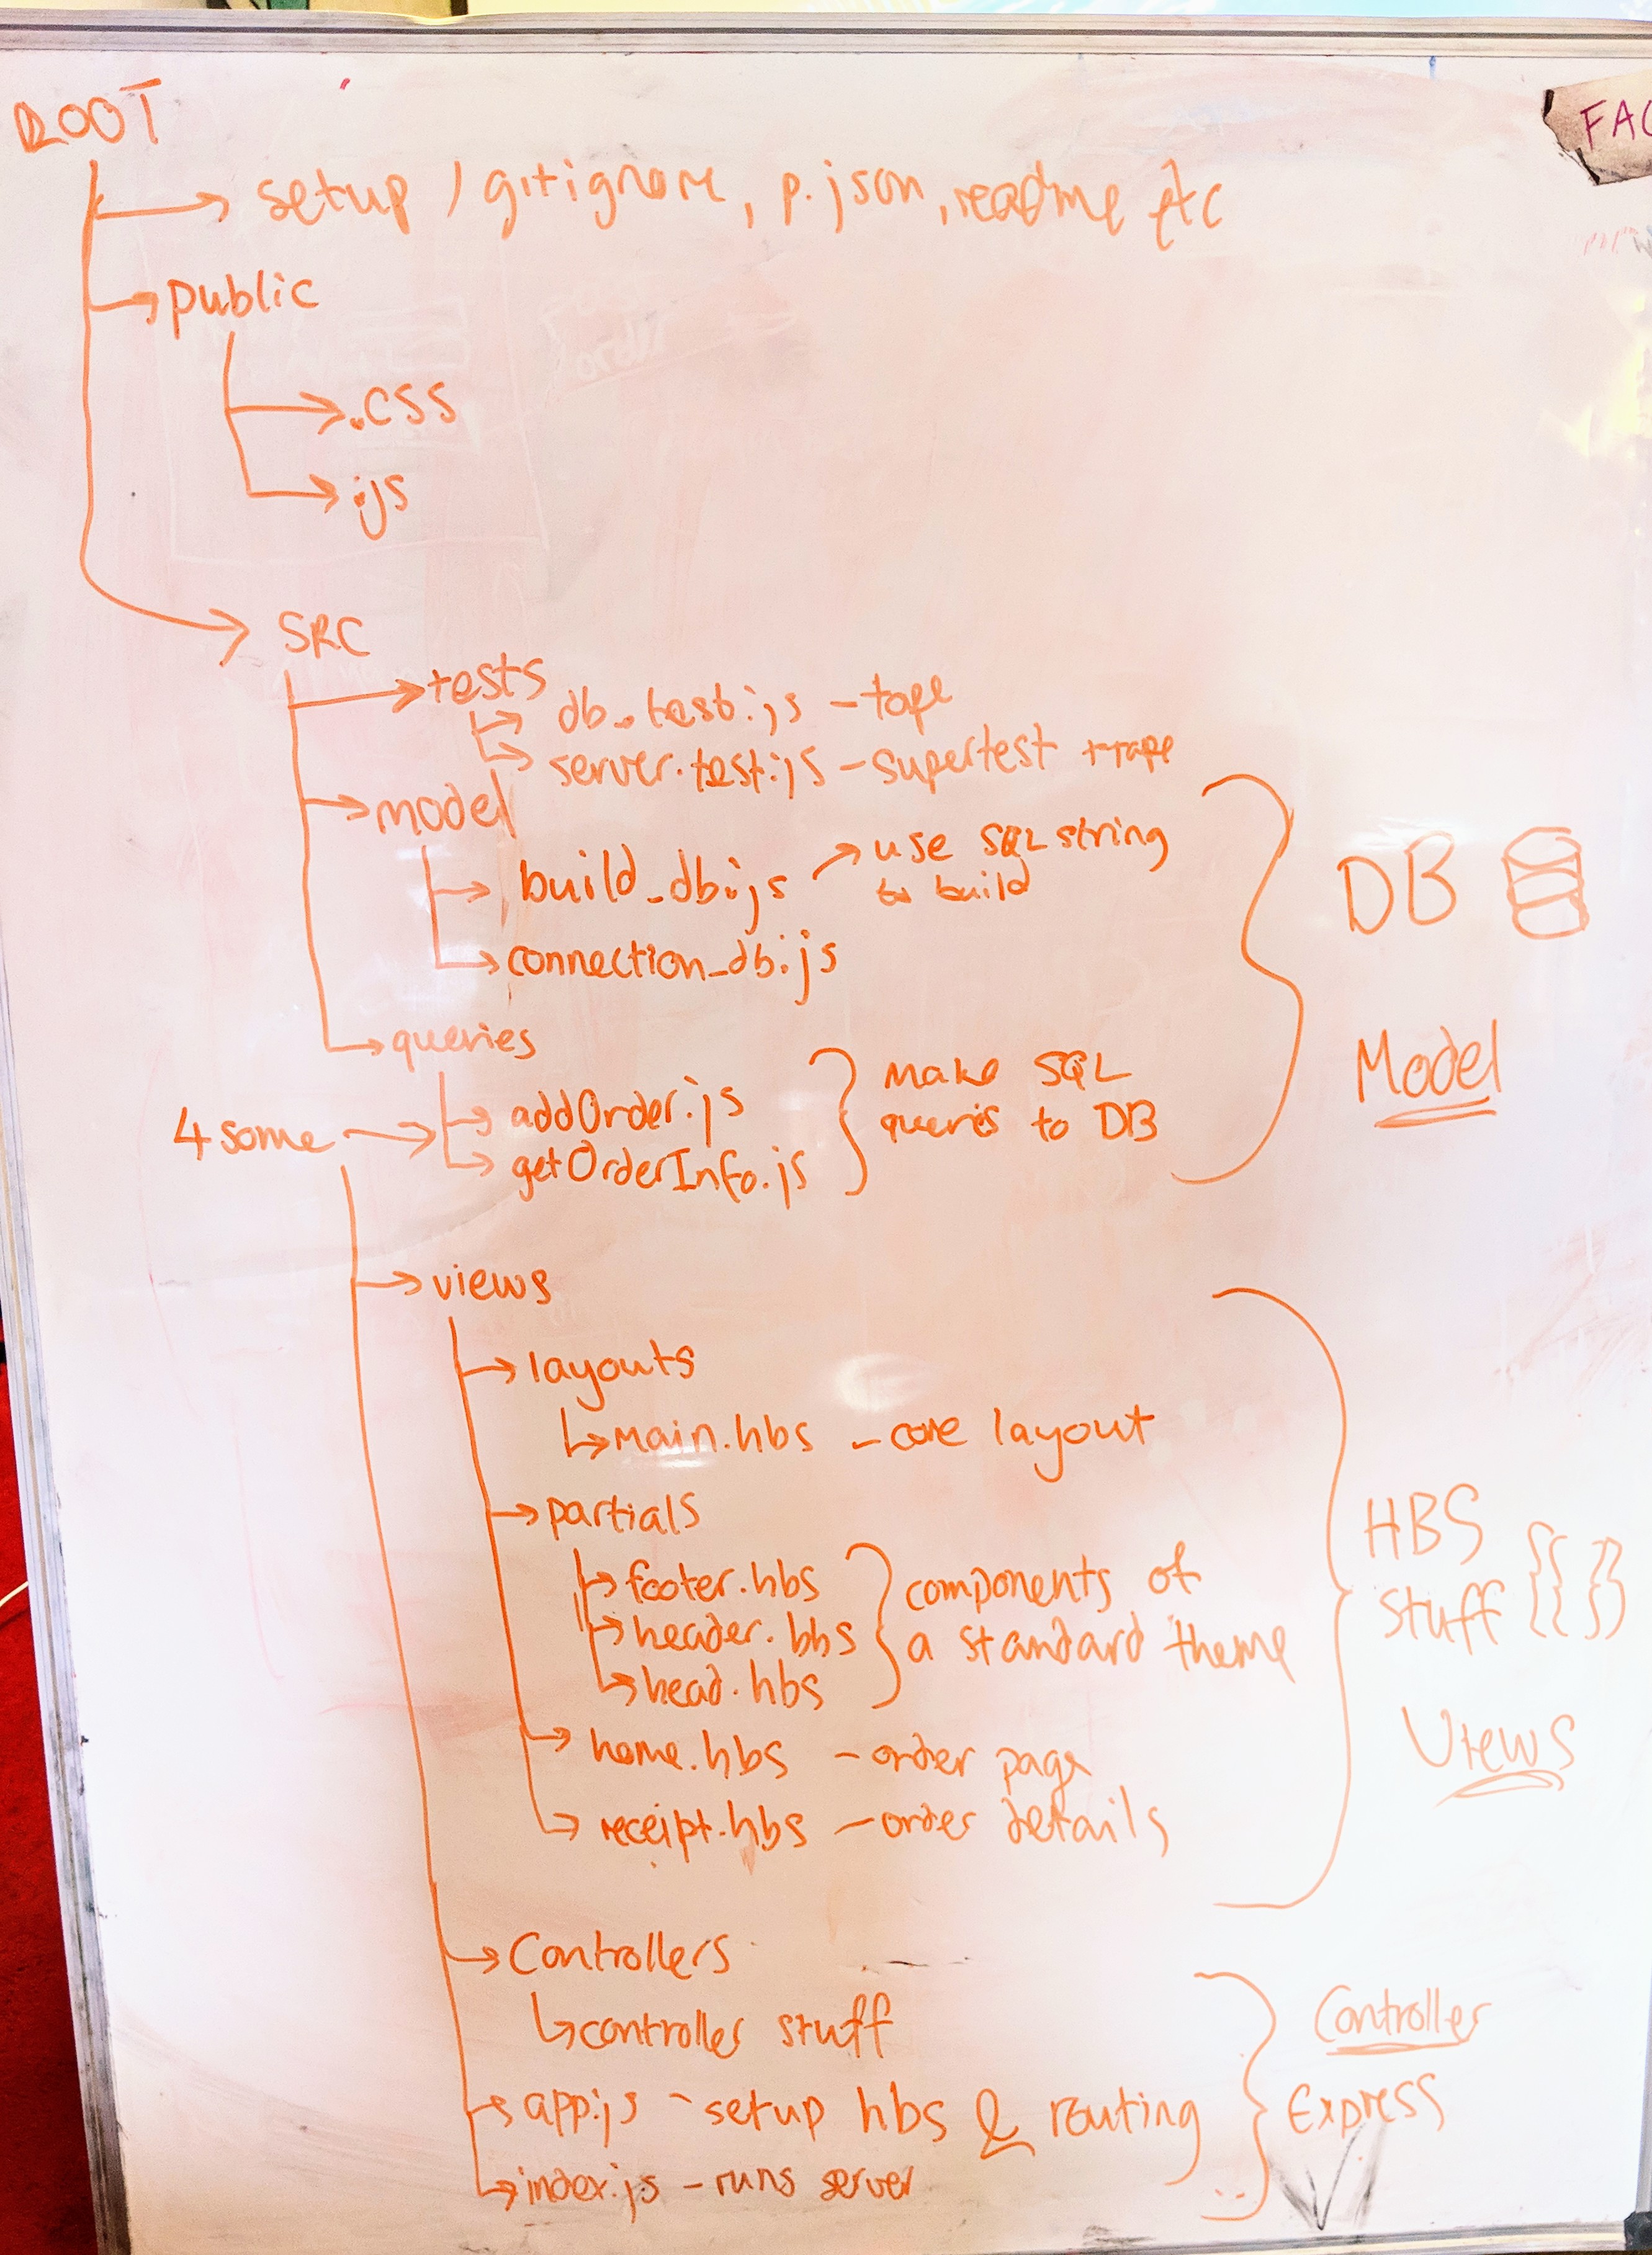 ROOT
FAC
setup / gitignore, p.json, readme etc
public
.css
.js
SRC
tests
db_test.js - tape
server.test.js - supertest + tape
model
build_db.js → use SQL string
to build
connection_db.js
DB
Model
queries
4 some →
addOrder.js
getOrderInfo.js
make SQL
queries to DB
views
layouts
main.hbs - core layout
partials
footer.hbs
header.hbs
head.hbs
components of
a standard theme
home.hbs - order page
receipt.hbs - order details
HBS
Stuff {{ }}
Views
Controllers
controller stuff
app.js - setup hbs & routing
index.js - runs server
Controller
Express